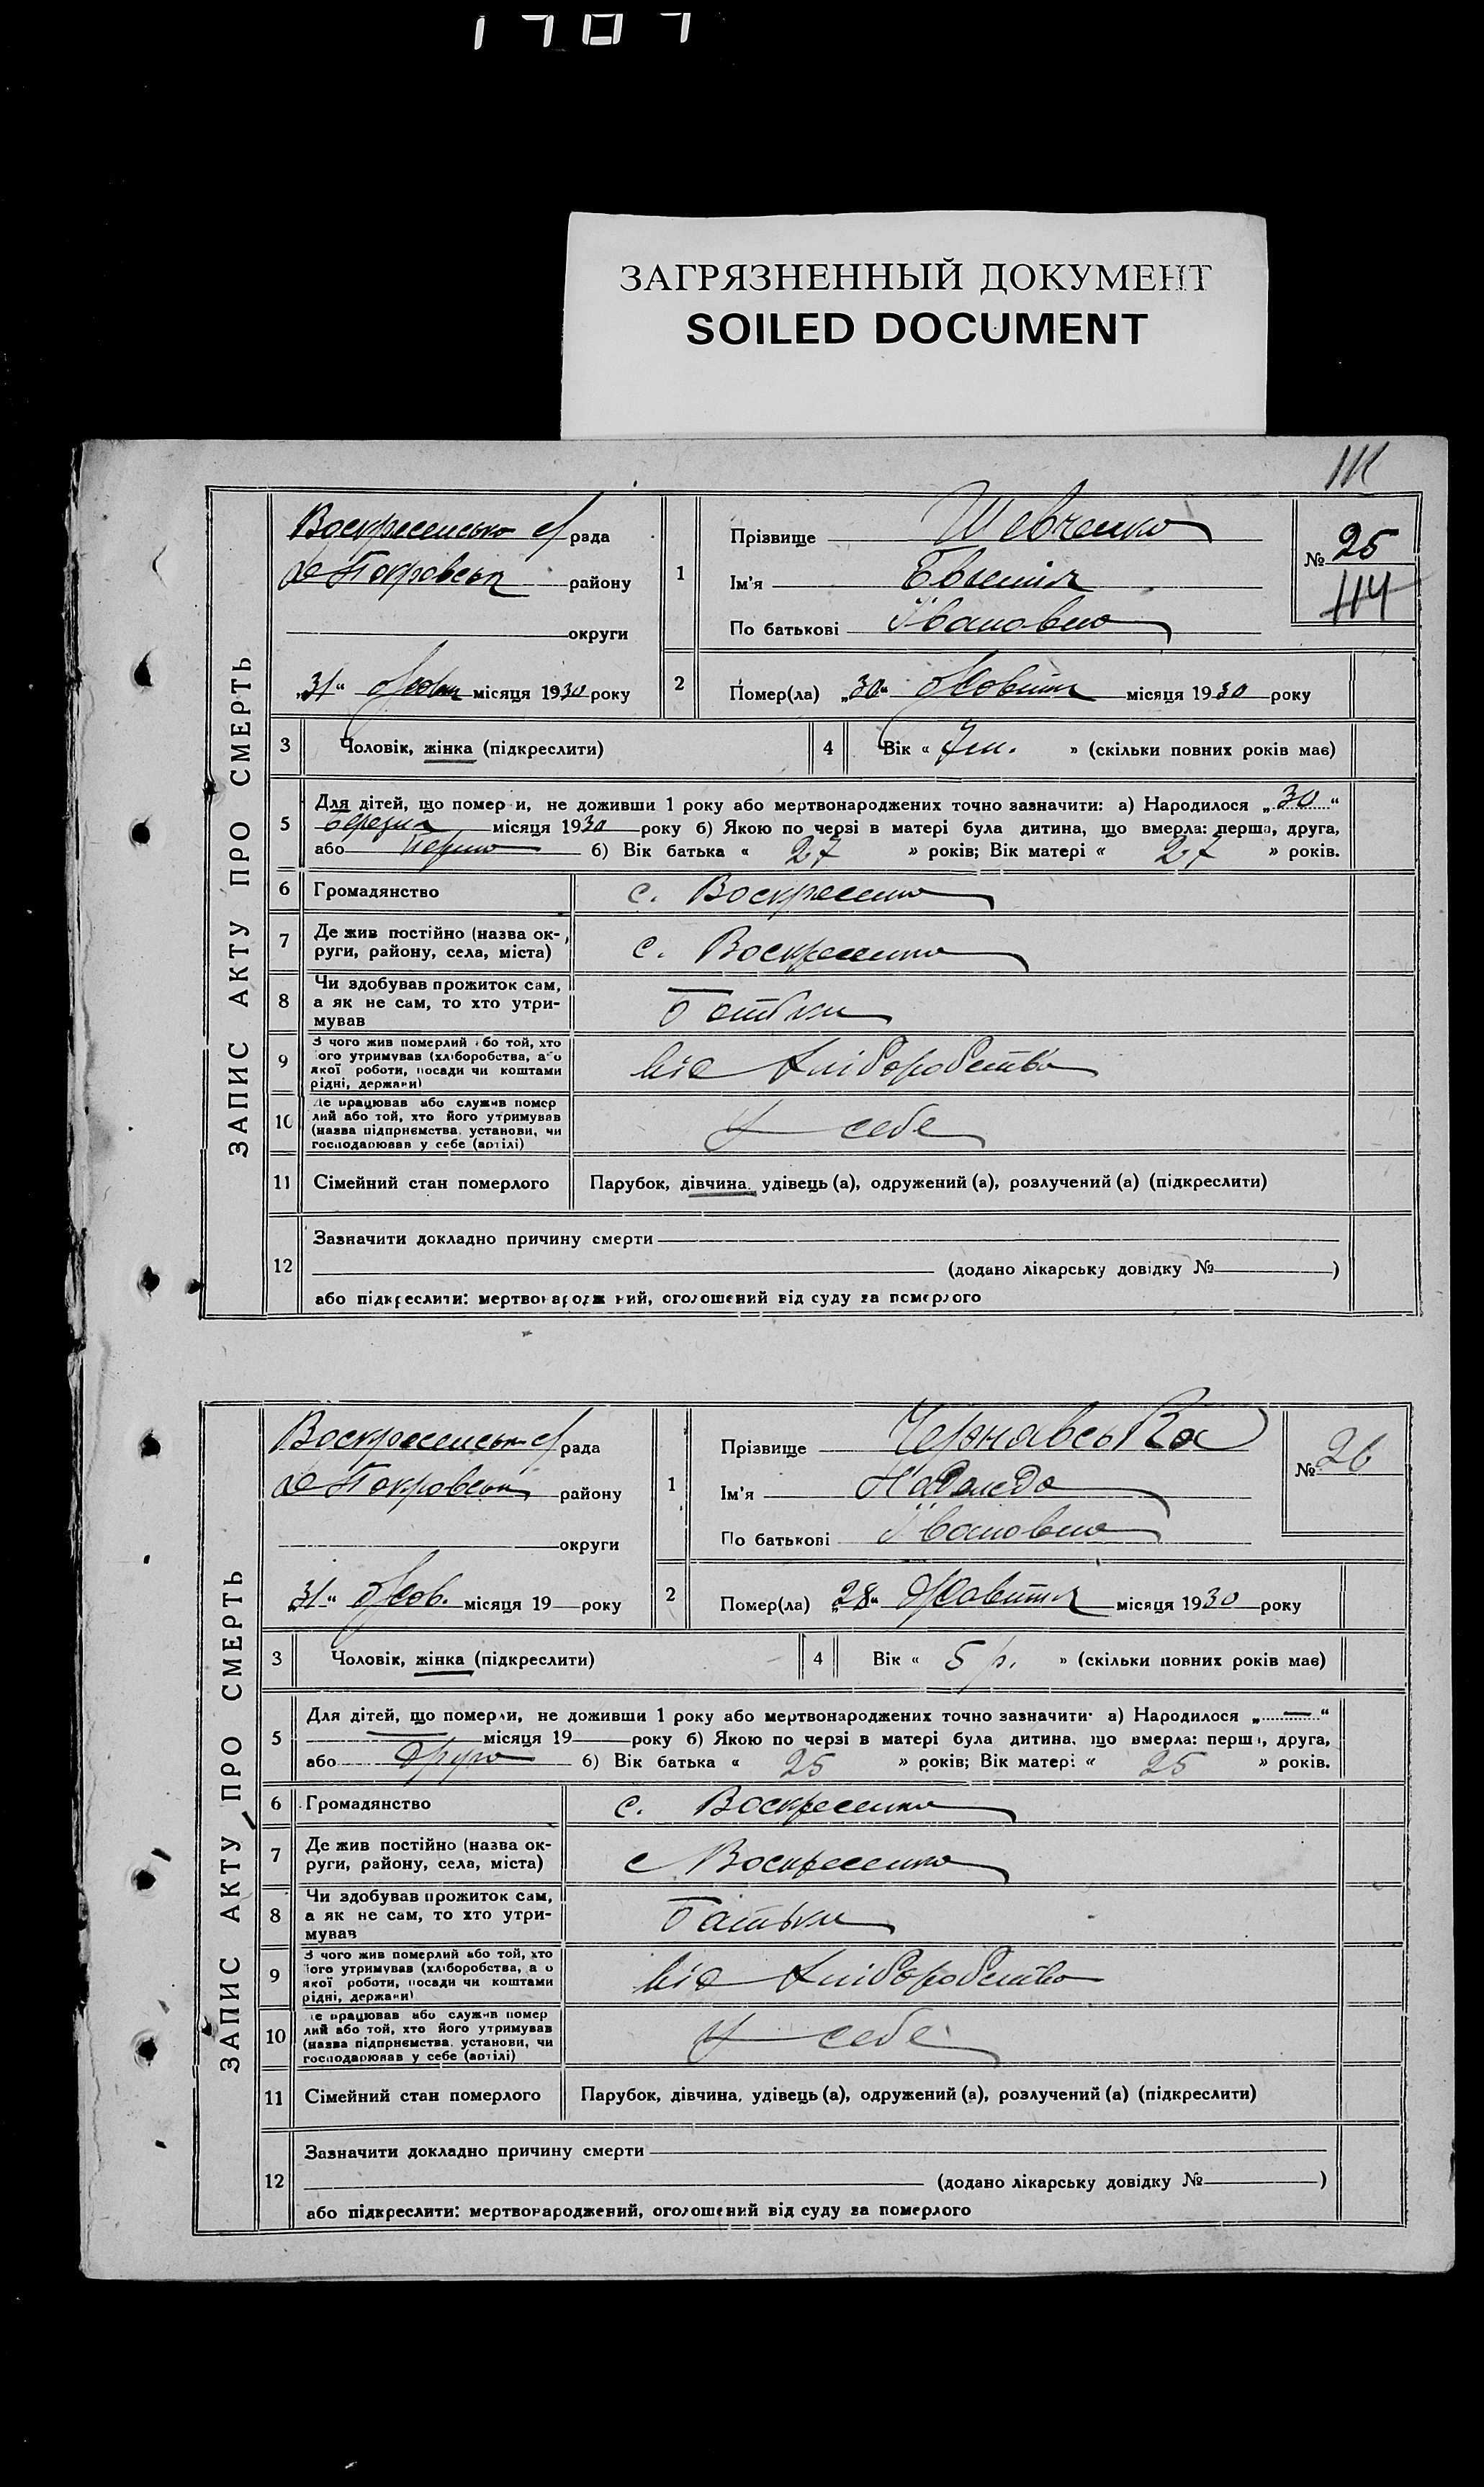 ЗАГРЯЗНЕННЫЙ ДОКУМЕНТ
SOILED DOCUMENT
ЗАПИС АКТУ ПРО СМЕРТЬ
Воскресенсько с/ рада
Покровськ району
округи
„31“ Жовтн місяця 1930 року
1
Прізвище Шевченко
Ім'я Євгенія
По батькові Івановна
№ 25
114
2
Помер(ла) „30“ Жовтня місяця 1930 року
3 Чоловік, жінка (підкреслити)
4 Вік « 7 м. » (скільки повних років має)
5 Для дітей, що помер и, не доживши 1 року або мертвонароджених точно зазначити: а) Народилося „30“
березня місяця 1930 року б) Якою по черзі в матері була дитина, що вмерла: перша, друга,
або перша б) Вік батька « 27 » років; Вік матері « 27 » років.
6 Громадянство с. Воскресенка
7 Де жив постійно (назва ок-
руги, району, села, міста) с. Воскресенка
8 Чи здобував прожиток сам,
а як не сам, то хто утри-
мував Батьки
9 З чого жив померлий або той, хто
його утримував (хліборобства, або
якої роботи, посади чи коштами
рідні, держави) від хліборобства
10 Де працював або служив помер
лий або той, хто його утримував
(назва підприємства, установи, чи
господарював у себе (артілі) У себе
11 Сімейний стан померлого Парубок, дівчина, удівець (а), одружений (а), розлучений (а) (підкреслити)
12 Зазначити докладно причину смерти
(додано лікарську довідку № )
або підкреслити: мертвонароджений, оголошений від суду за померлого
ЗАПИС АКТУ ПРО СМЕРТЬ
Воскресенськ с/ рада
Покровськ району
округи
„31“ Жов. місяця 19 року
1
Прізвище Чернавська
Ім'я Надежда
По батькові Івановна
№ 26
2
Помер(ла) „28“ Жовтня місяця 1930 року
3 Чоловік, жінка (підкреслити)
4 Вік « 5 р. » (скільки повних років має)
5 Для дітей, що померли, не доживши 1 року або мертвонароджених точно зазначити: а) Народилося „—“
— місяця 19 року б) Якою по черзі в матері була дитина, що вмерла: перша, друга,
або друга б) Вік батька « 25 » років; Вік матері « 25 » років.
6 Громадянство с. Воскресенка
7 Де жив постійно (назва ок-
руги, району, села, міста) с Воскресенка
8 Чи здобував прожиток сам,
а як не сам, то хто утри-
мував Батьки
9 З чого жив померлий або той, хто
його утримував (хліборобства, або
якої роботи, посади чи коштами
рідні, держави) від хліборобства
10 Де працював або служив помер
лий або той, хто його утримував
(назва підприємства, установи, чи
господарював у себе (артілі) У себе
11 Сімейний стан померлого Парубок, дівчина, удівець (а), одружений (а), розлучений (а) (підкреслити)
12 Зазначити докладно причину смерти
(додано лікарську довідку № )
або підкреслити: мертвонароджений, оголошений від суду за померлого